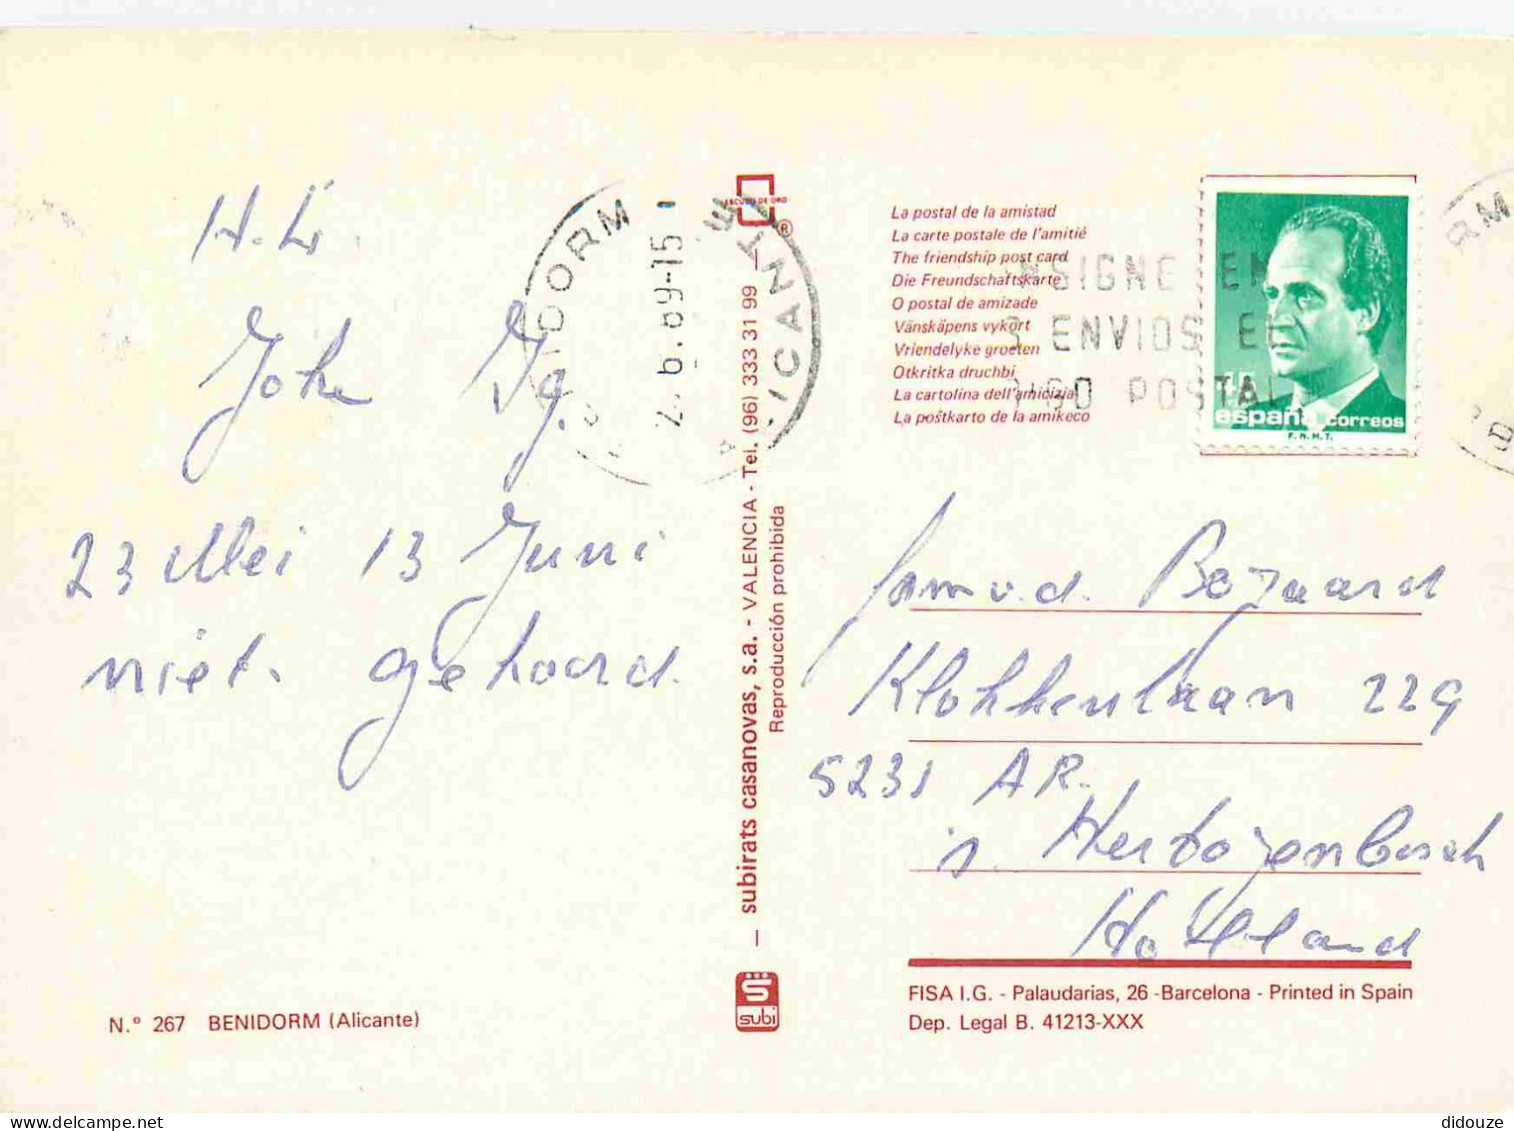 H. Li
Joke Jg.
23 Mei 13 Juni
niet. gehoord.
N.º 267 BENIDORM (Alicante)
ESCUDO DE ORO
®
BENIDORM
ALICANTE
— subirats casanovas, s.a. - VALENCIA - Tel. (96) 333 31 99 —
Reproducción prohibida
subi
La postal de la amistad
La carte postale de l'amitié
The friendship post card
Die Freundschaftskarte
O postal de amizade
Vänskäpens vykort
Vriendelyke groeten
Otkritka druchbi
La cartolina dell'amicizia
La poŝtkarto de la amikeco
NSIGNE EN
S ENVIOS EL
IGO POSTAL
españa correos
F.N.M.T.
fam v.d. Bogaard
Klokkenlaan 229
5231 AR.
's Hertogenbosch
Holland
FISA I.G. - Palaudarias, 26 -Barcelona - Printed in Spain
Dep. Legal B. 41213-XXX
didouze